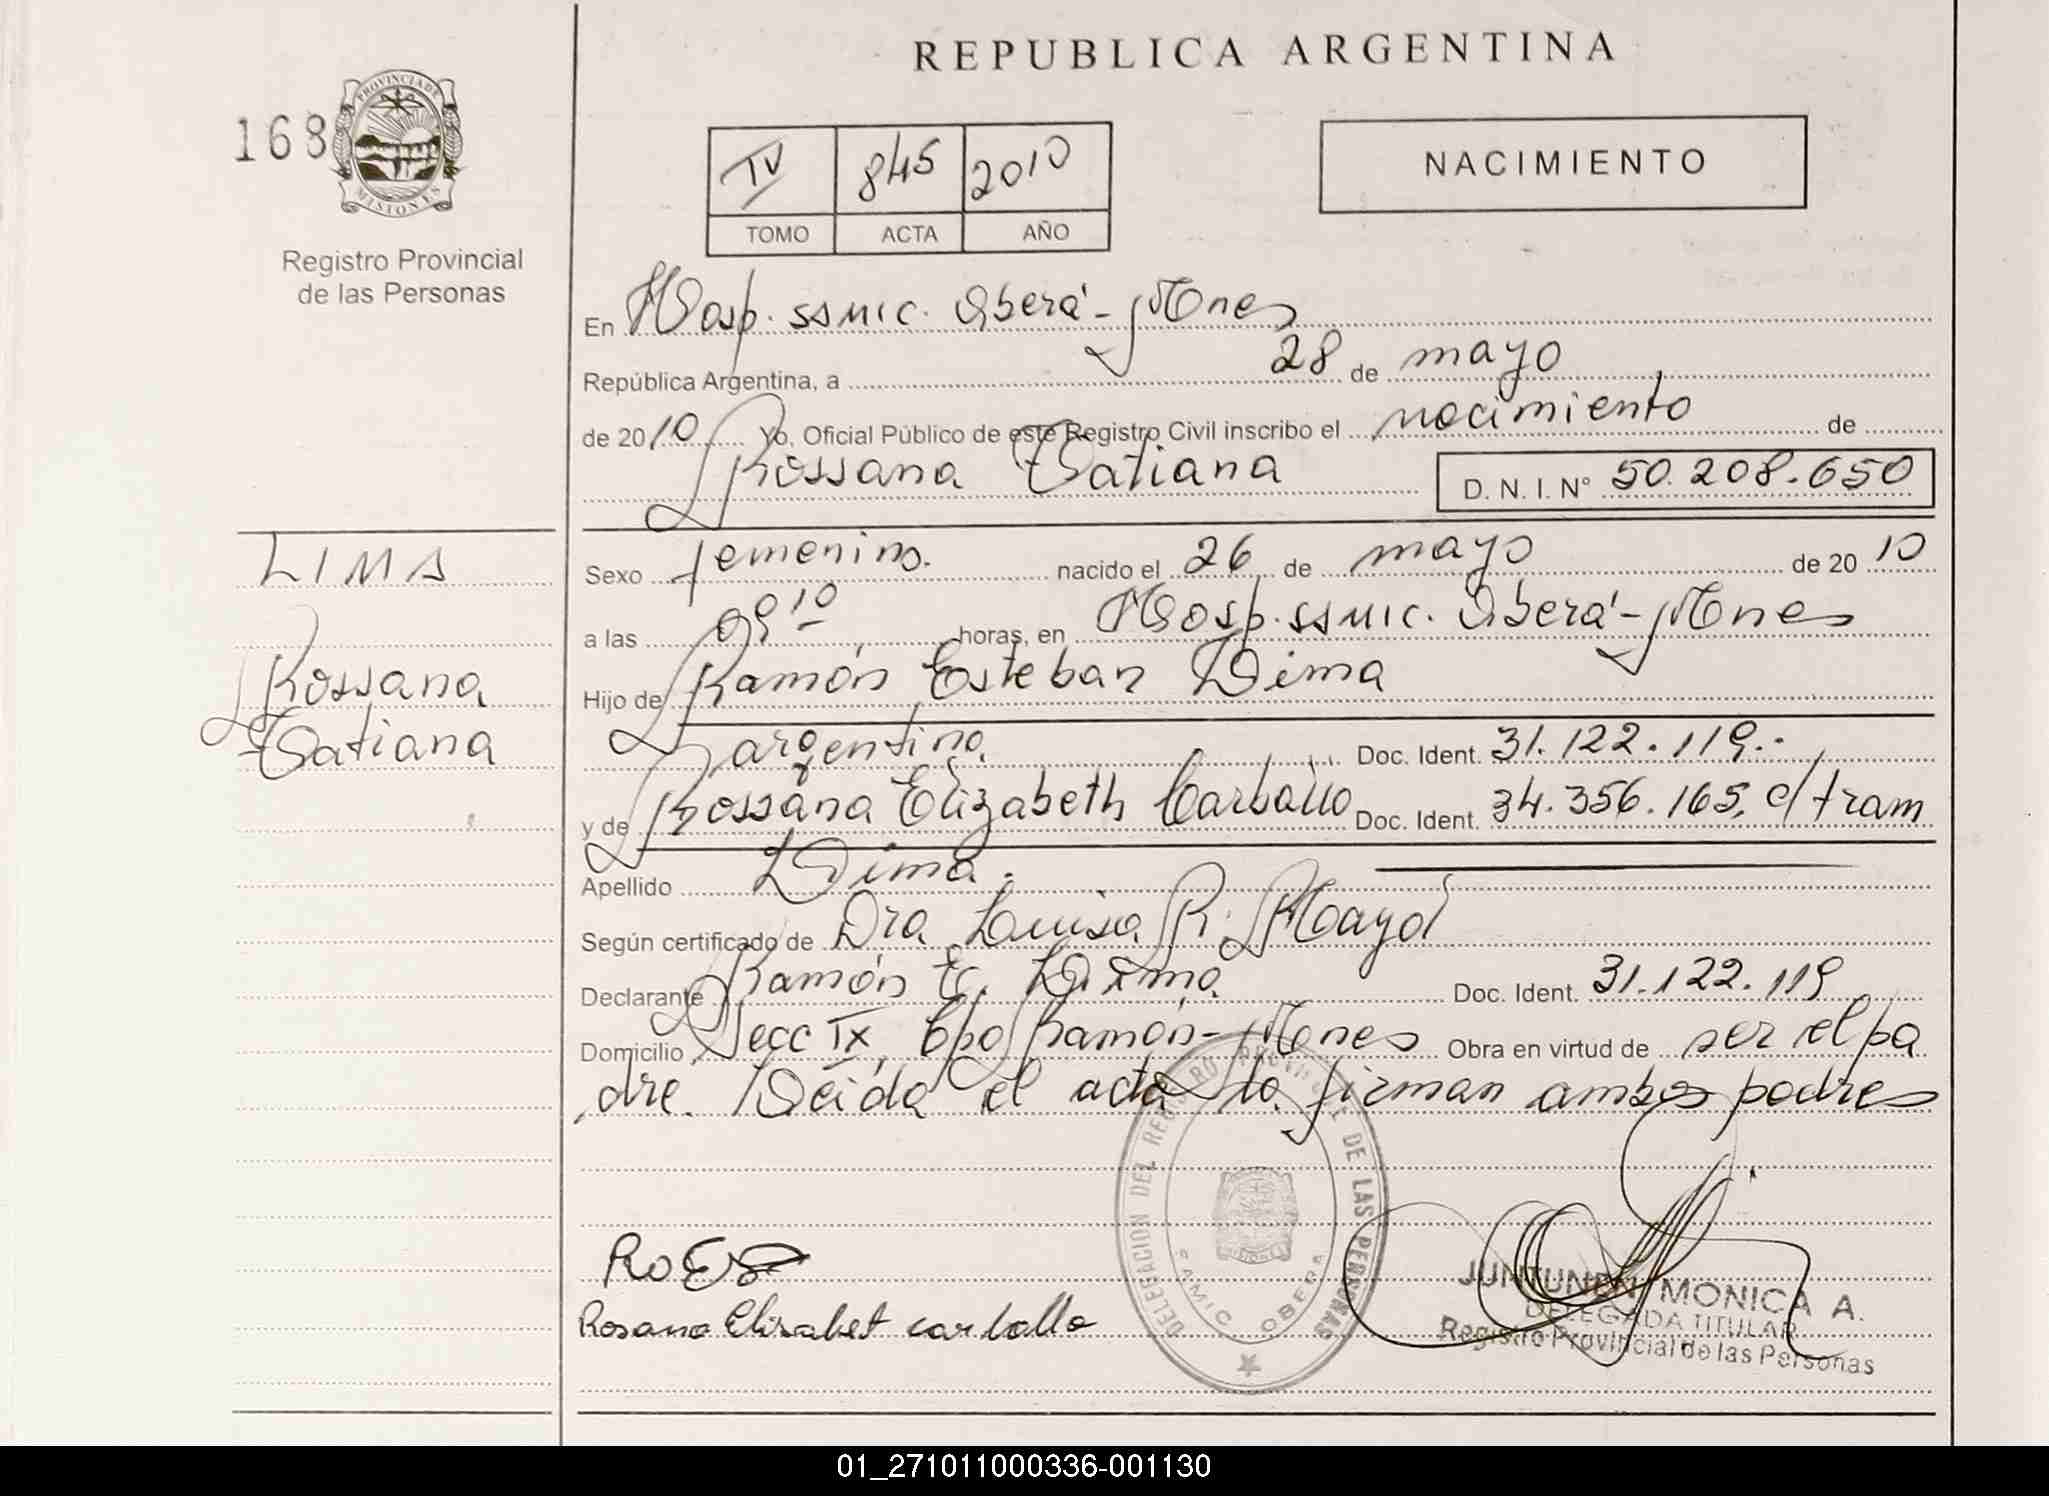 REPUBLICA ARGENTINA
168
PROVINCIA DE
MISIONES
Registro Provincial
de las Personas
IV 845 2010
TOMO ACTA AÑO
NACIMIENTO
En Hosp. SSMIC. Oberá - Mnes
República Argentina, a 28 de mayo
de 2010 Yo, Oficial Público de este Registro Civil inscribo el nacimiento de
Rossana Tatiana D. N. I. N° 50.208.650
LIMA
Rossana
Tatiana
Sexo femenino. nacido el 26 de mayo de 2010
a las 09 10 horas, en Hosp. SSMIC. Oberá - Mnes
Hijo de Ramón Esteban Lima
argentino Doc. Ident. 31.122.119.-
y de Rossana Elizabeth Carballo Doc. Ident. 34.356.165, c/tram
Apellido Lima.
Según certificado de Dra Luisa R. Mayol
Declarante Ramón E. Lima Doc. Ident. 31.122.119
Domicilio Secc IX, Cpo Ramón - Mnes Obra en virtud de ser el pa
dre. Leída el acta la firman ambos padres
DELEGACION DEL REGISTRO PROVINCIAL DE LAS PERSONAS
SAMIC OBERA
MISIONES
Rosana Elisabet carballo
JUNTUNEN MONICA A.
DELEGADA TITULAR
Registro Provincial de las Personas
01_271011000336-001130